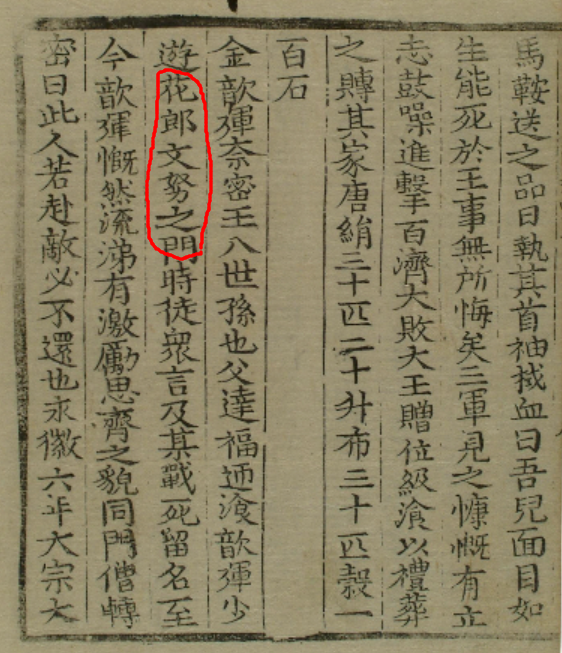 馬鞍送之品日執其首袖拭血曰吾兒面目如
生能死於王事無所悔矣三軍見之慷慨有立
志鼓噪進擊百濟大敗大王贈位級湌以禮葬
之賻其家唐絹三十匹二十升布三十匹穀一
百石
金歆運奈密王八世孫也父達福迊湌歆運少
遊花郎文努之門時徒衆言及某戰死留名至
今歆運慨然流涕有激勵思齊之貌同門僧轉
密曰此人若赴敵必不還也永徽六年大宗大